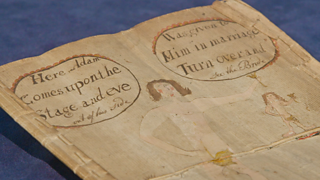 Here Adam
Comes upon the
Stage and eve
out of his side
Was given to
Him in marriage
Turn over and
See the Bride